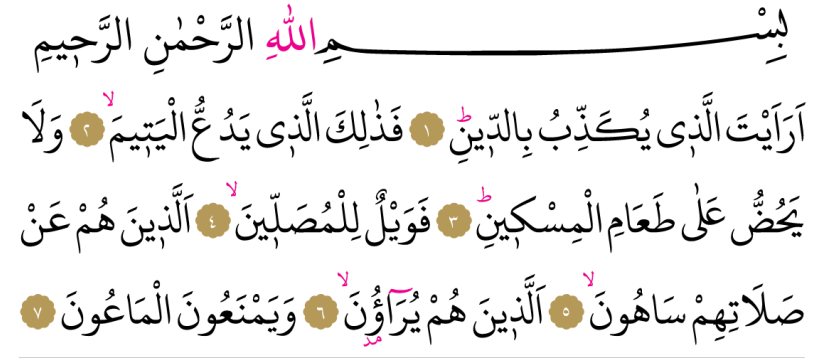 بِسْمِ اللّٰهِ الرَّحْمٰنِ الرَّح۪يمِ
اَرَاَيْتَ الَّذ۪ي يُكَذِّبُ بِالدّ۪ينِۜ ﴿١﴾ فَذٰلِكَ الَّذ۪ي يَدُعُّ الْيَت۪يمَۙ ﴿٢﴾ وَلَا
يَحُضُّ عَلٰى طَعَامِ الْمِسْك۪ينِۜ ﴿٣﴾ فَوَيْلٌ لِلْمُصَلّ۪ينَۙ ﴿٤﴾ اَلَّذ۪ينَ هُمْ عَنْ
صَلَاتِهِمْ سَاهُونَۙ ﴿٥﴾ اَلَّذ۪ينَ هُمْ يُرَٓاؤُ۫نَۙ ﴿٦﴾ وَيَمْنَعُونَ الْمَاعُونَ ﴿٧﴾
مد